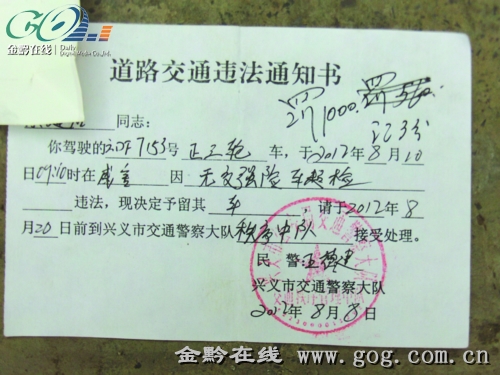 金黔在线
道路交通违法通知书
罚1000.
记3分
同志:
你驾驶的 7153号正三轮车,于2012年8月10
日09:10时在 因无交强险 车超检
违法,现决定予留其车,请于2012年8
月20日前到兴义市交通警察大队秩序中队接受处理。
民警:王
兴义市交通警察大队
2012年8月8日
金黔在线 www.gog.com.cn